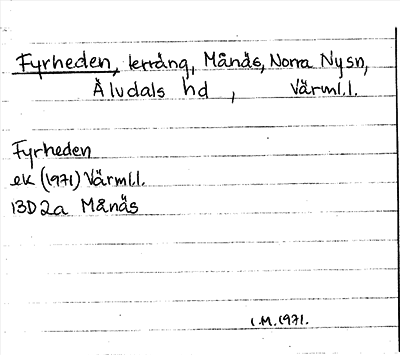 Fyrheden, terräng, Månäs, Norra Ny sn,
Älvdals hd, Värml.l.
Fyrheden
ek (1971) Värml.l.
13D2a Månäs
I.M.1971.